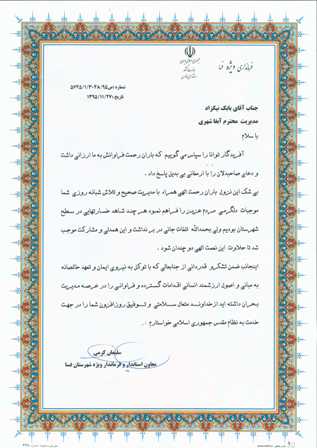 فرمانداری ویژه فسا
جناب آقای بابک نیکزاد
مدیریت محترم آبفا شهری
با سلام
آفریدگار توانا را سپاس می گوییم که باران رحمت فراوانش به ما ارزانی داشت
و دعای صاحبدلان را با ارمغانی بی بدیل پاسخ داد .
بی شک این نزول باران رحمت الهی همراه با مدیریت صحیح و تلاش شبانه روزی شما
موجبات دلگرمی مردم عزیزمان را فراهم نمود هر چند شاهد خسارتهایی در سطح
شهرستان بودیم ولی بحمدالله تلفات جانی در بر نداشت و این همدلی و مشارکت موجب
شد تا حلاوت این نعمت الهی دو چندان شود .
اینجانب ضمن تشکر و قدردانی از جنابعالی که با توکل به نیروی ایمان و تعهد خالصانه
به مبانی و اصول ارزشمند انسانی اقدامات گسترده و فراوانی را در عرصه مدیریت
بحران داشته اید از خداوند متعال سلامتی و توفیق روزافزون شما را در جهت
خدمت به نظام مقدس جمهوری اسلامی خواستارم .
سلیمان کرمی
معاون استاندار و فرماندار ویژه شهرستان فسا